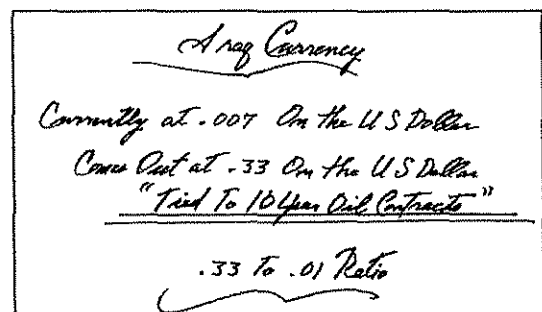 Iraq Currency
Currently at .007 On the US Dollar
Comes Out at .33 On the US Dollar
"Tied To 10 Year Oil Contracts"
.33 To .01 Ratio